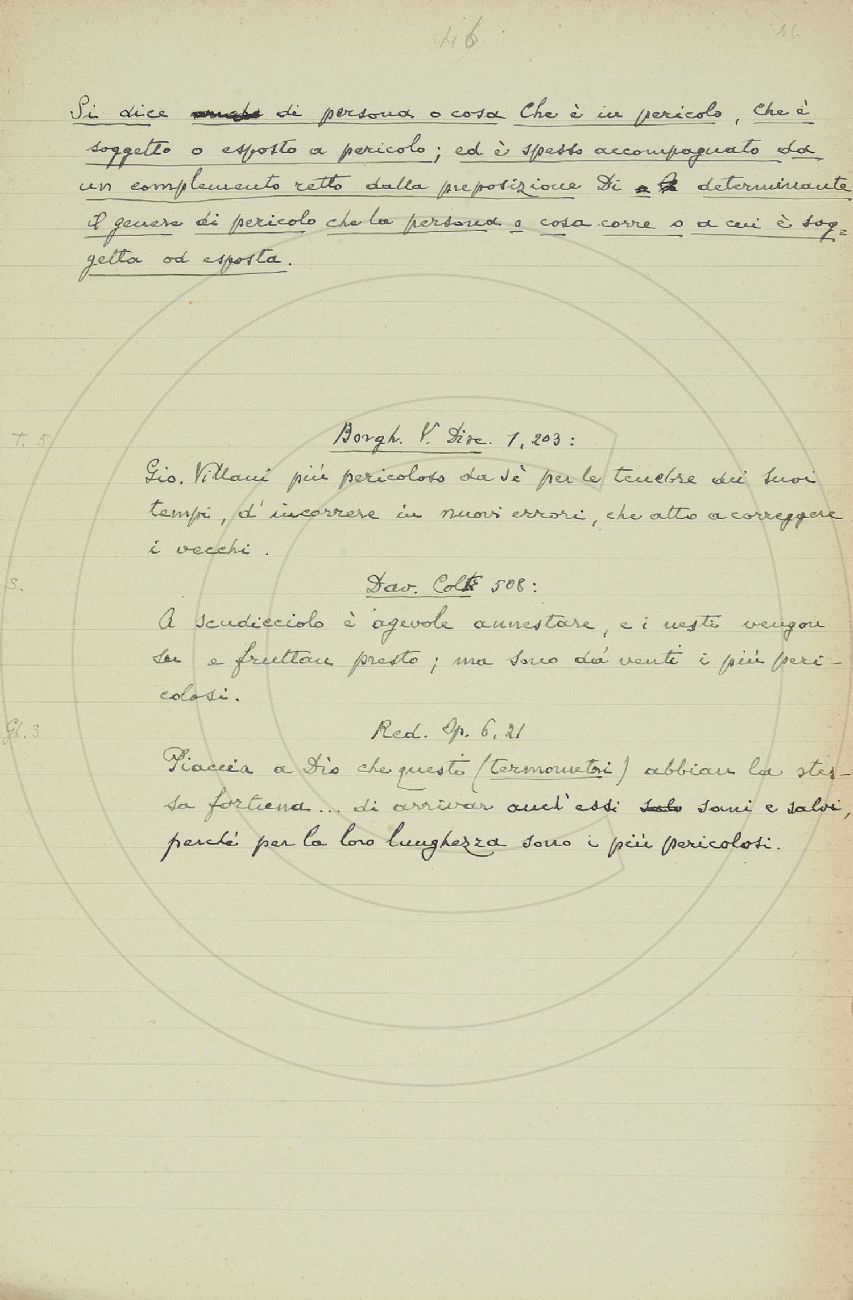 46
45.
Si dice anche di persona o cosa Che è in pericolo, che è
soggetto o esposto a pericolo; ed è spesso accompagnato da
un complemento retto dalla preposizione Di determinante
il genere di pericolo che la persona o cosa corre o a cui è sog=
getta od esposta.
T. 5
Borgh. V. Disc. 1, 203:
Gio. Villani più pericoloso da sè per le tenebre dei suoi
tempi, d'incorrere in nuovi errori, che atto a correggere
i vecchi.
S.
Dav. Colt 508:
A scudicciolo è agevole annestare, e i nesti vengon
su e fruttan presto; ma sono da' venti i più peri-
colosi.
Gh. 3
Red. Op. 6, 21
Piaccia a Dio che questi (termometri) abbian la stes-
sa fortuna ... di arrivar anch'essi salo sani e salvi,
perchè per la loro lunghezza sono i più pericolosi.